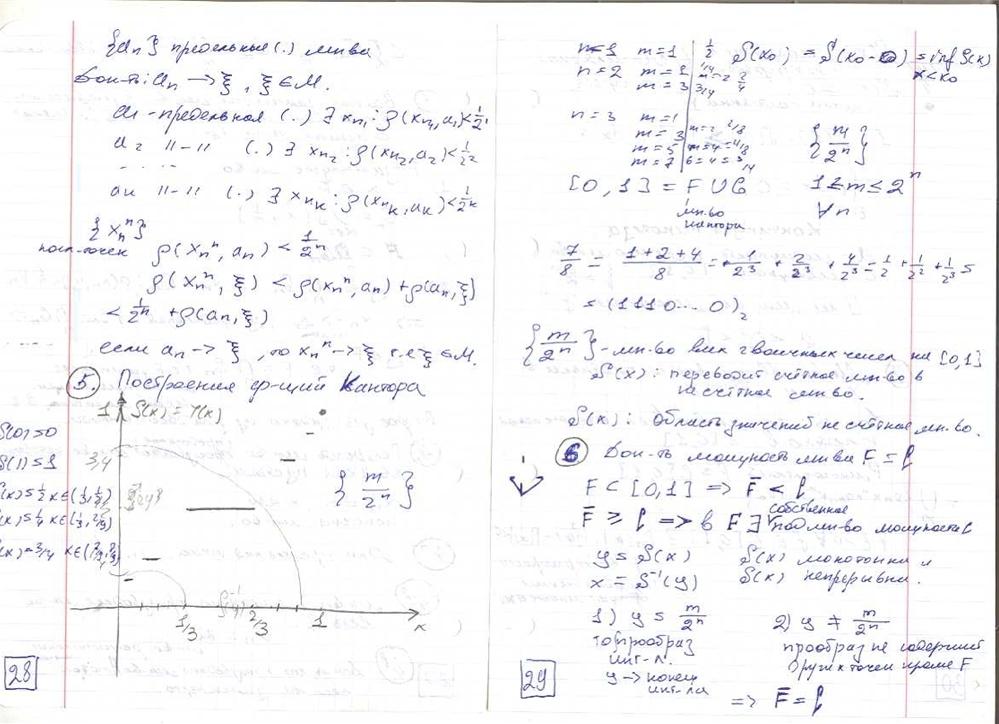 {an} предельные (.) мн-ва
Док-ть: an → ξ, ξ ∈ M.
a1 - предельная (.) ∃ xn1 : ρ(xn1, a1) < 1/2
a2 11-11 (.) ∃ xn2 : ρ(xn2, a2) < 1/2²
. . . . .
ak 11-11 (.) ∃ xnk : ρ(xnk, ak) < 1/2^k
{xn^n}
посл. точек ρ(xn^n, an) < 1/2^n
ρ(xn^n, ξ) < ρ(xn^n, an) + ρ(an, ξ)
< 1/2^n + ρ(an, ξ)
если an → ξ, то xn^n → ξ т.е ξ ∈ M.
5. Построения ф-ций Кантора
1 S(x) = γ(x)
S(0) = 0
S(1) = 1
3/4
{m/2^n}
1/3 2/3 1 x
28
n=1 m=1 1/2 S(x0) = S(x0-0) = inf S(x)
x<x0
n=2 m=1 1/4 m=2 2/4
m=3 3/4
n=3 m=1
m=3 m=2 2/8
m=5 m=4=4/8
m=7 6=4=3/4
{m/2^n}
[0,1] = F ∪ G 1 ≤ m ≤ 2^n
мн-во кантора ∀n
7/8 = (1+2+4)/8 = 1/2³ + 2/2³ + 4/2³ = 1/2 + 1/2² + 1/2³ =
= (1110...0)₂
{m/2^n} - мн-во всех двоичных чисел на [0,1]
S(x): переводит счётное мн-во в
несчётное мн-во.
S(x): Область значений не счётное мн-во.
6 Док-ть мощность мн-ва F = ρ
F ⊂ [0,1] => F̄ < ρ
F̄ ≥ ρ => в F ∃ собственное
подмн-во мощности c
y = S(x) S(x) монотонна и
x = S⁻¹(y) S(x) непрерывна.
1) y = m/2^n 2) y ≠ m/2^n
то прообраз прообраз не содержит
инт-л. других точек кроме F
y → конец
инт-ла
=> F̄ = ρ
29